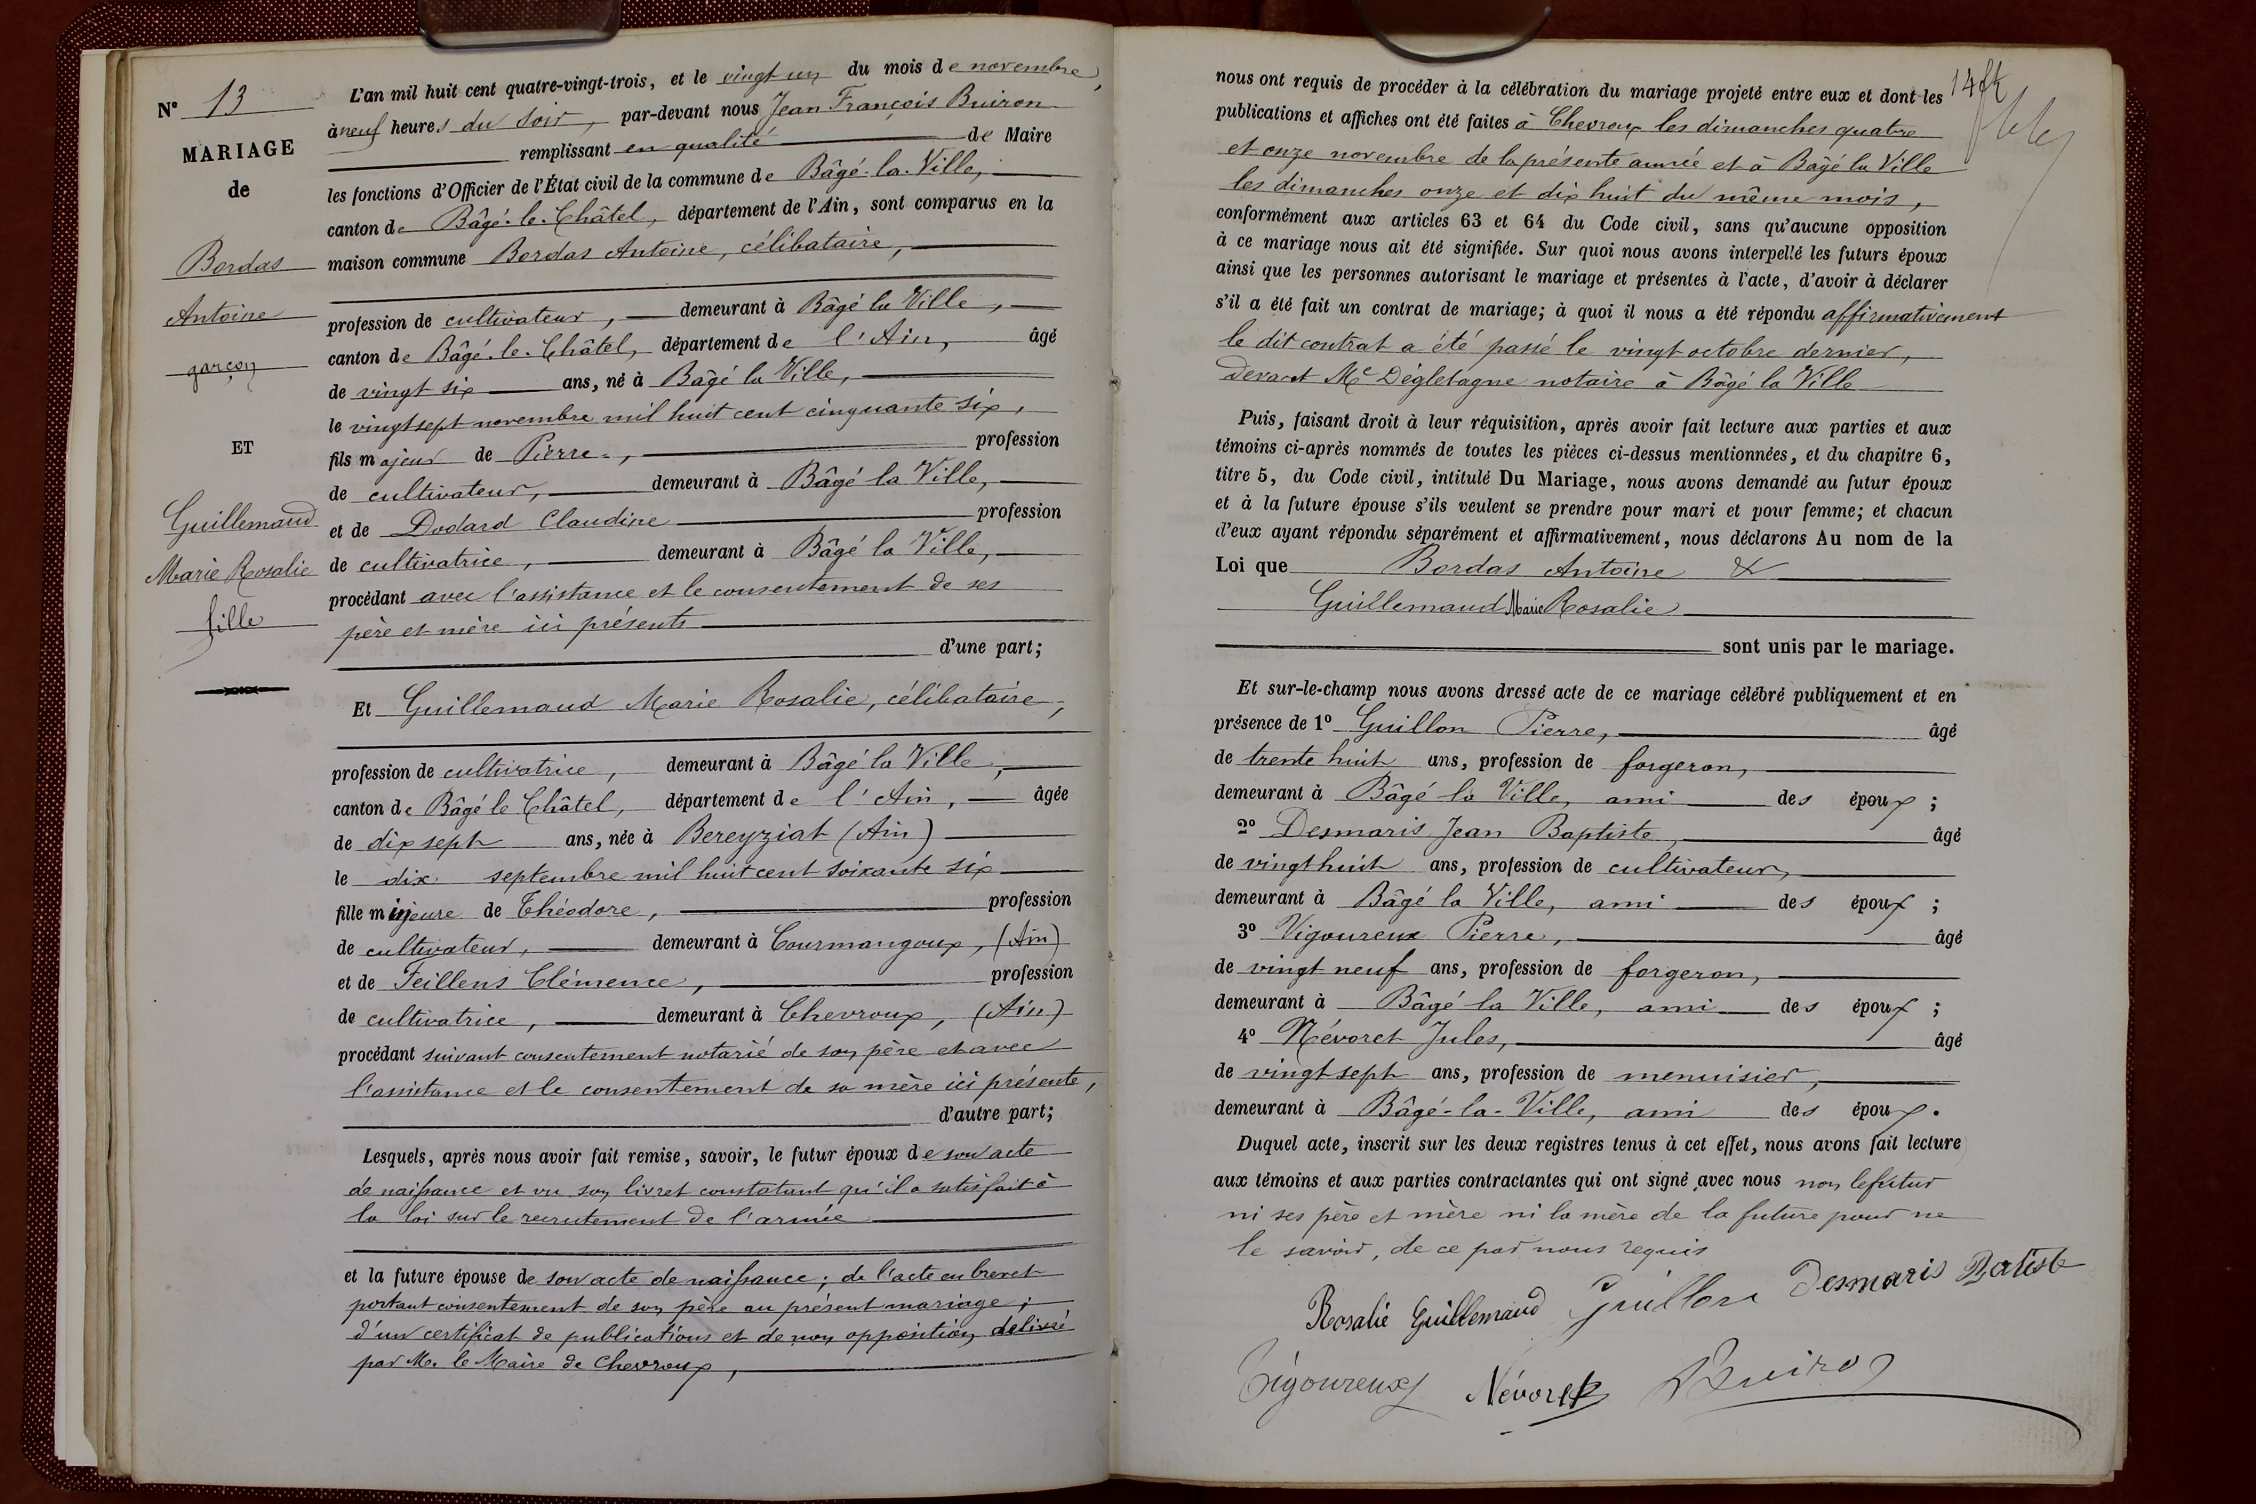 N° 13
MARIAGE
de
Bordas
Antoine
garçon
ET
Guillemaud
Marie Rosalie
fille
L'an mil huit cent quatre-vingt-trois, et le vingt un du mois de novembre,
à neuf heures du soir, par-devant nous Jean François Buiron
remplissant en qualité de Maire
les fonctions d'Officier de l'État civil de la commune de Bâgé-la-Ville,
canton de Bâgé-le-Châtel, département de l'Ain, sont comparus en la
maison commune Bordas Antoine, célibataire,
profession de cultivateur, demeurant à Bâgé la Ville,
canton de Bâgé-le-Châtel, département de l'Ain, âgé
de vingt six ans, né à Bâgé la Ville,
le vingt sept novembre mil huit cent cinquante six,
fils majeur de Pierre, profession
de cultivateur, demeurant à Bâgé la Ville,
et de Dodard Claudine profession
de cultivatrice, demeurant à Bâgé la Ville,
procédant avec l'assistance et le consentement de ses
père et mère ici présents
d'une part;
Et Guillemaud Marie Rosalie, célibataire,
profession de cultivatrice, demeurant à Bâgé la Ville,
canton de Bâgé le Châtel, département de l'Ain, âgée
de dix sept ans, née à Bereyziat (Ain)
le dix septembre mil huit cent soixante six
fille mineure de Théodore, profession
de cultivateur, demeurant à Courmangoux, (Ain)
et de Feillens Clémence, profession
de cultivatrice, demeurant à Chevroux, (Ain)
procédant suivant consentement notarié de son père et avec
l'assistance et le consentement de sa mère ici présente,
d'autre part;
Lesquels, après nous avoir fait remise, savoir, le futur époux de son acte
de naissance et vu son livret constatant qu'il a satisfait à
la loi sur le recrutement de l'armée
et la future épouse de son acte de naissance; de l'acte en brevet
portant consentement de son père au présent mariage;
d'un certificat de publications et de non opposition délivré
par M. le Maire de Chevroux,
nous ont requis de procéder à la célébration du mariage projeté entre eux et dont les
publications et affiches ont été faites à Chevroux les dimanches quatre
et onze novembre de la présente année et à Bâgé la Ville
les dimanches onze et dix huit du même mois,
conformément aux articles 63 et 64 du Code civil, sans qu'aucune opposition
à ce mariage nous ait été signifiée. Sur quoi nous avons interpellé les futurs époux
ainsi que les personnes autorisant le mariage et présentes à l'acte, d'avoir à déclarer
s'il a été fait un contrat de mariage; à quoi il nous a été répondu affirmativement
le dit contrat a été passé le vingt octobre dernier,
devant Me Dégletagne notaire à Bâgé la Ville
Puis, faisant droit à leur réquisition, après avoir fait lecture aux parties et aux
témoins ci-après nommés de toutes les pièces ci-dessus mentionnées, et du chapitre 6,
titre 5, du Code civil, intitulé Du Mariage, nous avons demandé au futur époux
et à la future épouse s'ils veulent se prendre pour mari et pour femme; et chacun
d'eux ayant répondu séparément et affirmativement, nous déclarons Au nom de la
Loi que Bordas Antoine &
Guillemaud Marie Rosalie
sont unis par le mariage.
Et sur-le-champ nous avons dressé acte de ce mariage célébré publiquement et en
présence de 1° Guillon Pierre, âgé
de trente huit ans, profession de forgeron,
demeurant à Bâgé la Ville, ami des époux;
2° Desmaris Jean Baptiste, âgé
de vingt huit ans, profession de cultivateur,
demeurant à Bâgé la Ville, ami des époux;
3° Vigoureux Pierre, âgé
de vingt neuf ans, profession de forgeron,
demeurant à Bâgé la Ville, ami des époux;
4° Névoret Jules, âgé
de vingt sept ans, profession de menuisier,
demeurant à Bâgé-la-Ville, ami des époux.
Duquel acte, inscrit sur les deux registres tenus à cet effet, nous avons fait lecture
aux témoins et aux parties contractantes qui ont signé avec nous non le futur
ni ses père et mère ni la mère de la future pour ne
le savoir, de ce par nous requis
Rosalie Guillemaud Guillon Desmaris Batiste
Vigoureux Névoret Buiron